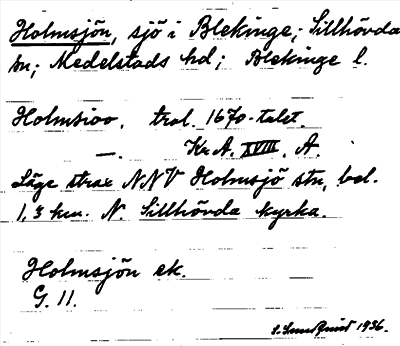 Holmsjön, sjö i Blekinge; Sillhövda
sn; Medelstads hd; Blekinge l.
Holmsioo. trol. 1670-talet.
—. Kr. A. XVIII. A.
Läge strax NNV Holmsjö stn, bel.
1,3 km. N. Sillhövda kyrka.
Holmsjön ek.
G. 11.
1936.